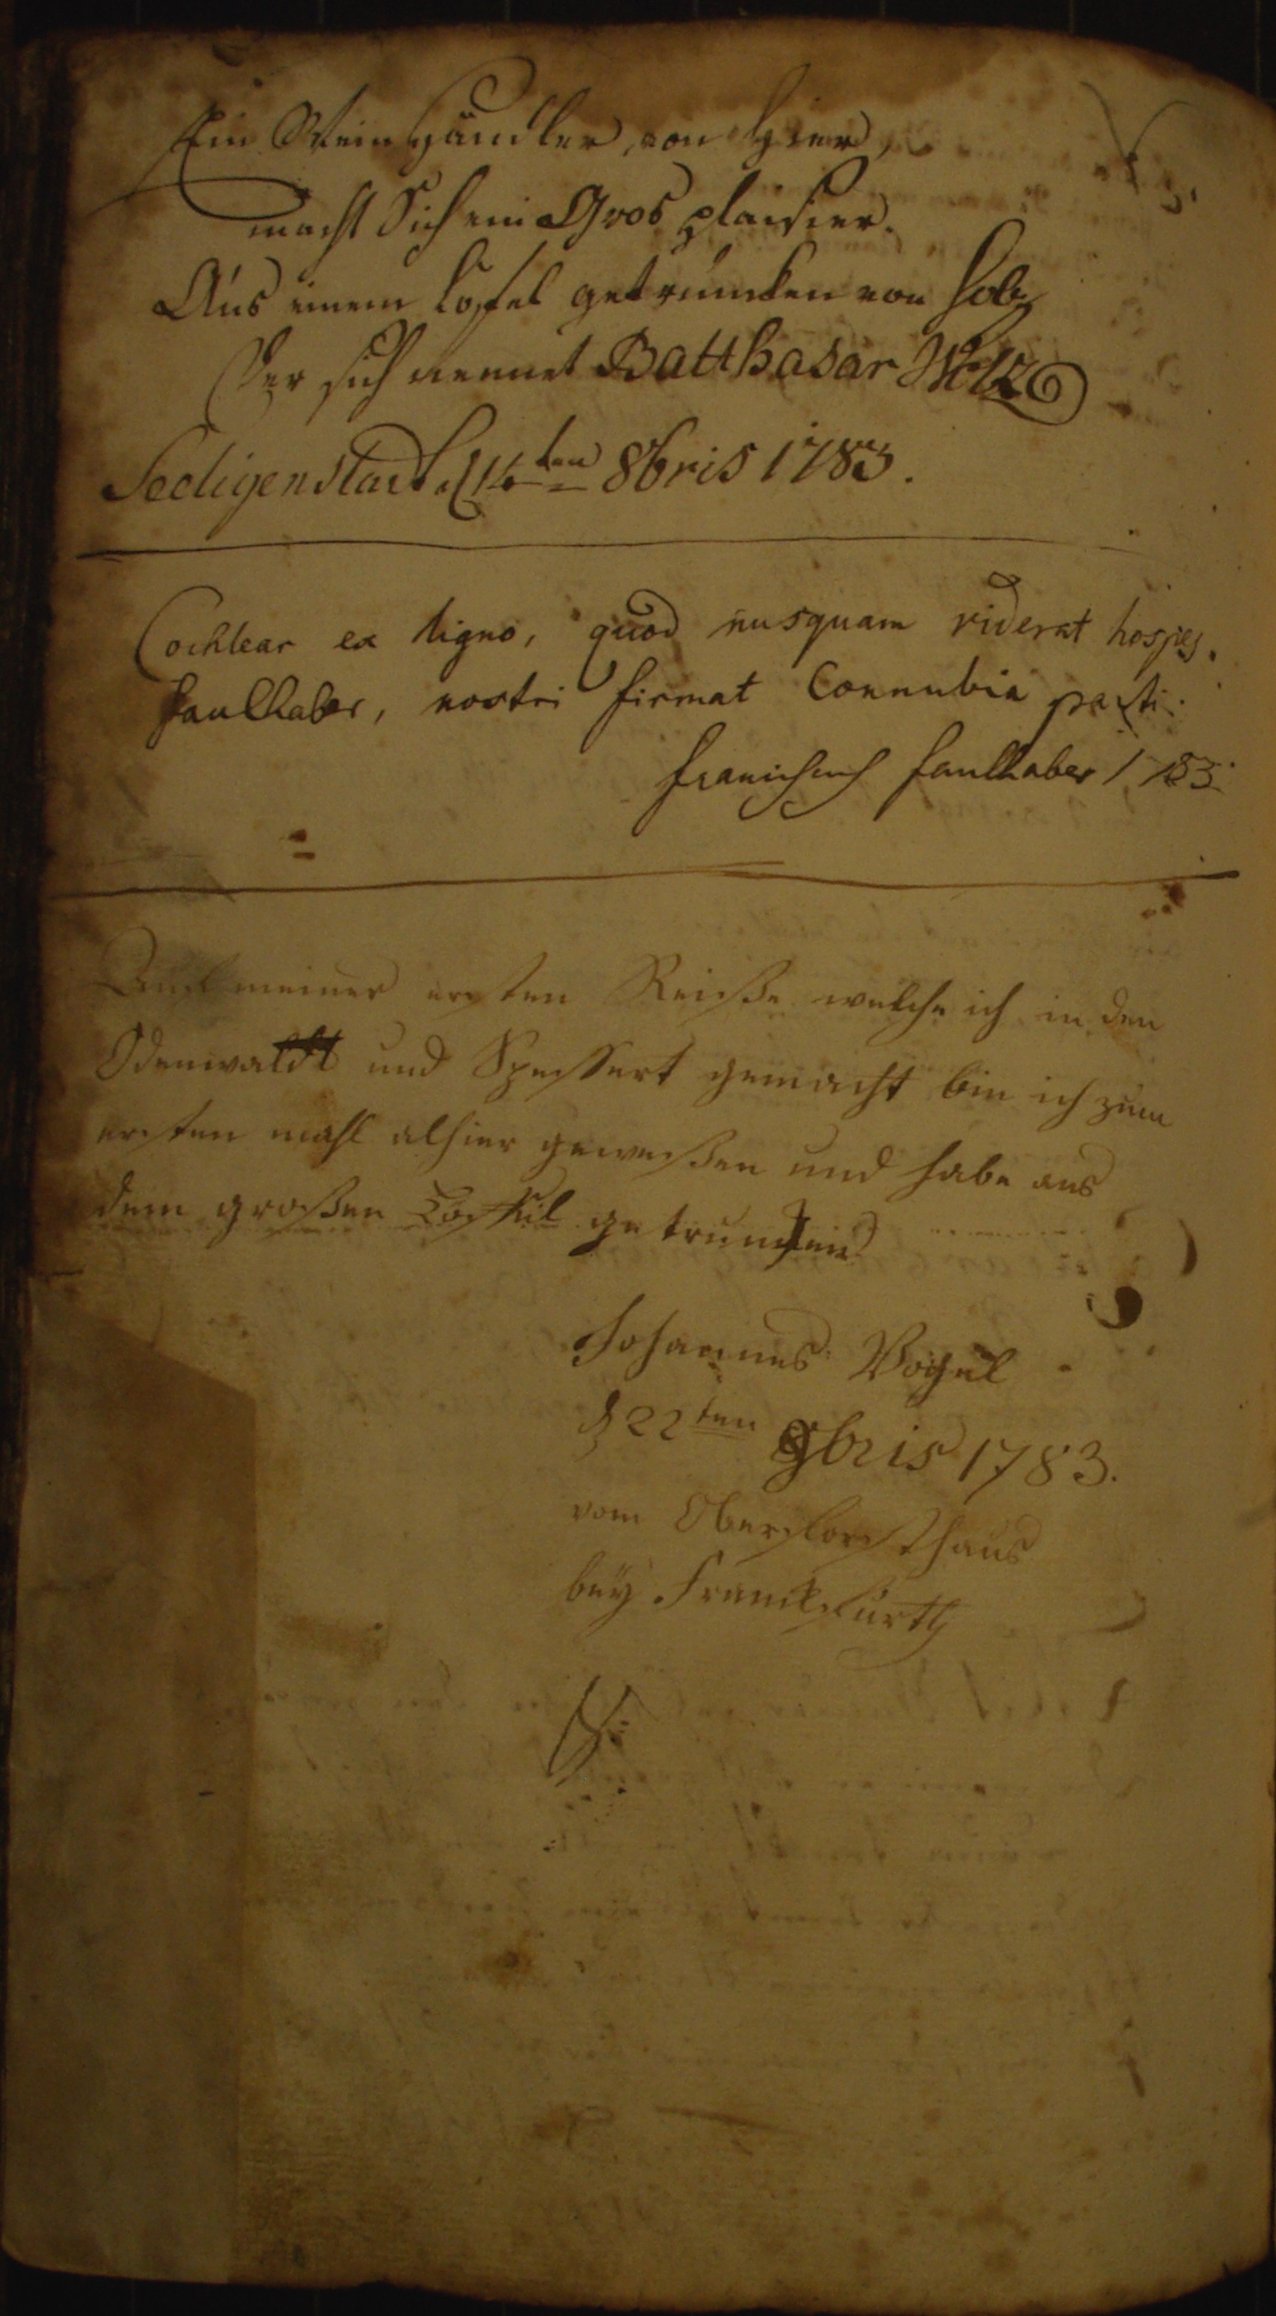 Ein Wein händler, von hier,
macht Sich ein Gros plaisier.
Aus einem Löfel getruncken von holz
Der sich nennet Balthasar Wolz
Seeligenstadt d 14ten 8bris 1783.
Cochlear ex ligno, quod nusquam viderat hospes,
Faulhaber, nostri firmat Connubia pacti.
Faulhaber 1783
meiner ersten Reiße welche ich in den
Odenwaldt und Spessert gemacht bin ich zum
ersten mahl alhier geweßen und habe aus
dem großen Löffel getruncken
Johannes Vogel
d 22ten 9bris 1783.
vom Oberforsthaus
bey Franckfurth